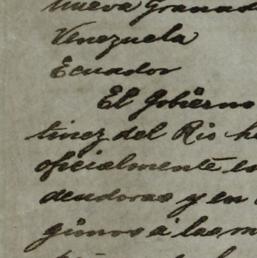 Nueva Granad
Venezuela
Ecuador
El Gobierno
tinez del Rio h
oficialmente e
deudoras y en
gunos a las m